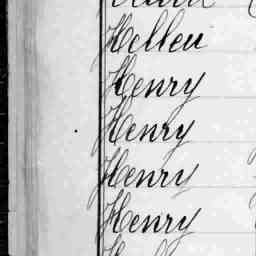 Hellen
Henry
Henry
Henry
Henry